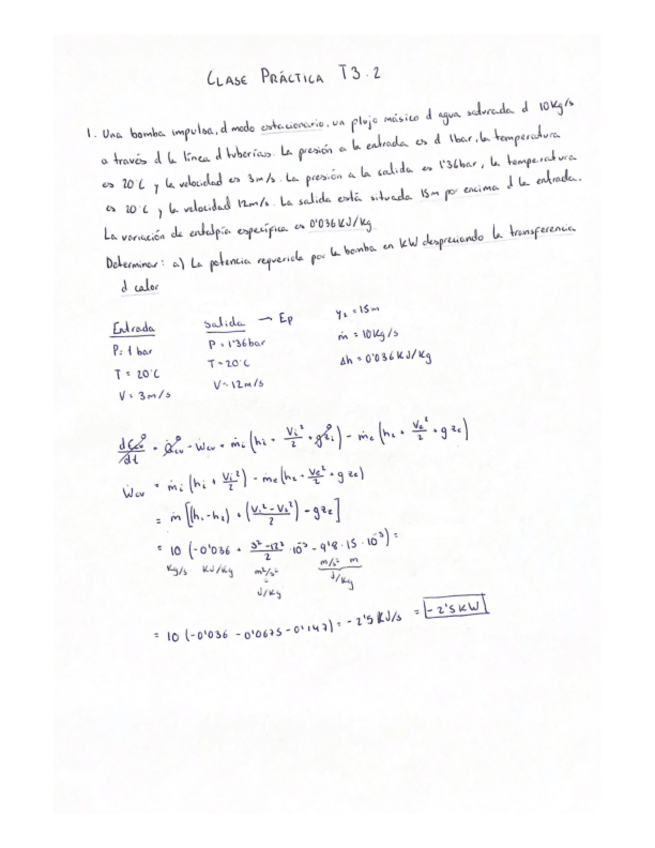 CLASE PRÁCTICA T3.2
1. Una bomba impulsa, d modo estacionario, un flujo másico d agua saturada d 10Kg/s
a través d la línea d tuberías. La presión a la entrada es d 1bar, la temperatura
es 20ºC y la velocidad es 3m/s. La presión a la salida es 1'36bar, la temperatura
es 20ºC y la velocidad 12m/s. La salida está situada 15m por encima d la entrada.
La variación de entalpía específica es 0'036KJ/Kg.
Determinar: a) La potencia requerida por la bomba en kW despreciando la transferencia
d calor
Entrada Salida → Ep y₂ = 15m
P = 1 bar P = 1'36bar ṁ = 10Kg/s
T = 20ºC T = 20ºC Δh = 0'036KJ/Kg
V = 3m/s V = 12m/s
dEcv/dt⁰ = Q̇cv⁰ - Ẇcv + ṁi (hi + Vi²/2 + gzi⁰) - ṁe (he + Ve²/2 + gze)
Ẇcv = ṁi (hi + Vi²/2) - ṁe (he + Ve²/2 + gze)
= ṁ [(h₁-h₂) + (V₁²-V₂²/2) - gze]
= 10 (-0'036 + 3²-12²/2 · 10⁻³ - 9'8 · 15 · 10⁻³) =
Kg/s KJ/Kg m²/s² m/s² m
= J/Kg
J/Kg
= 10 (-0'036 - 0'0675 - 0'147) = -2'5 KJ/s = -2'5KW